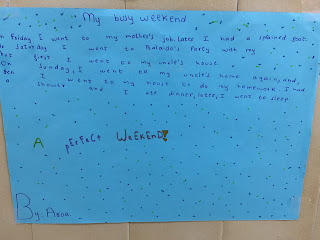 My busy weekend
n Friday I went to my mother's job. later I had a sprained foot.
Saturday I went to Balado's Party with my
first I went to my uncle's house.
On Sunday, I went to my uncle's home again, and,
I went to my house to do my homework. I had
a shower and I ate dinner, later, I went to sleep.
A PERFECT WEEKEND!
By: Aroa.